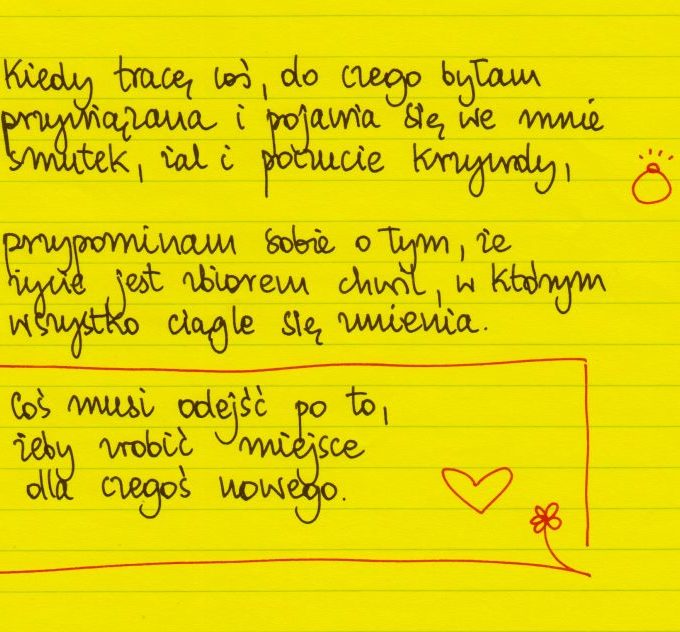 Kiedy tracę coś, do czego byłam
przywiązana i pojawia się we mnie
smutek, żal i poczucie krzywdy,
przypominam sobie o tym, że
życie jest zbiorem chwil, w którym
wszystko ciągle się zmienia.
Coś musi odejść po to,
żeby zrobić miejsce
dla czegoś nowego.